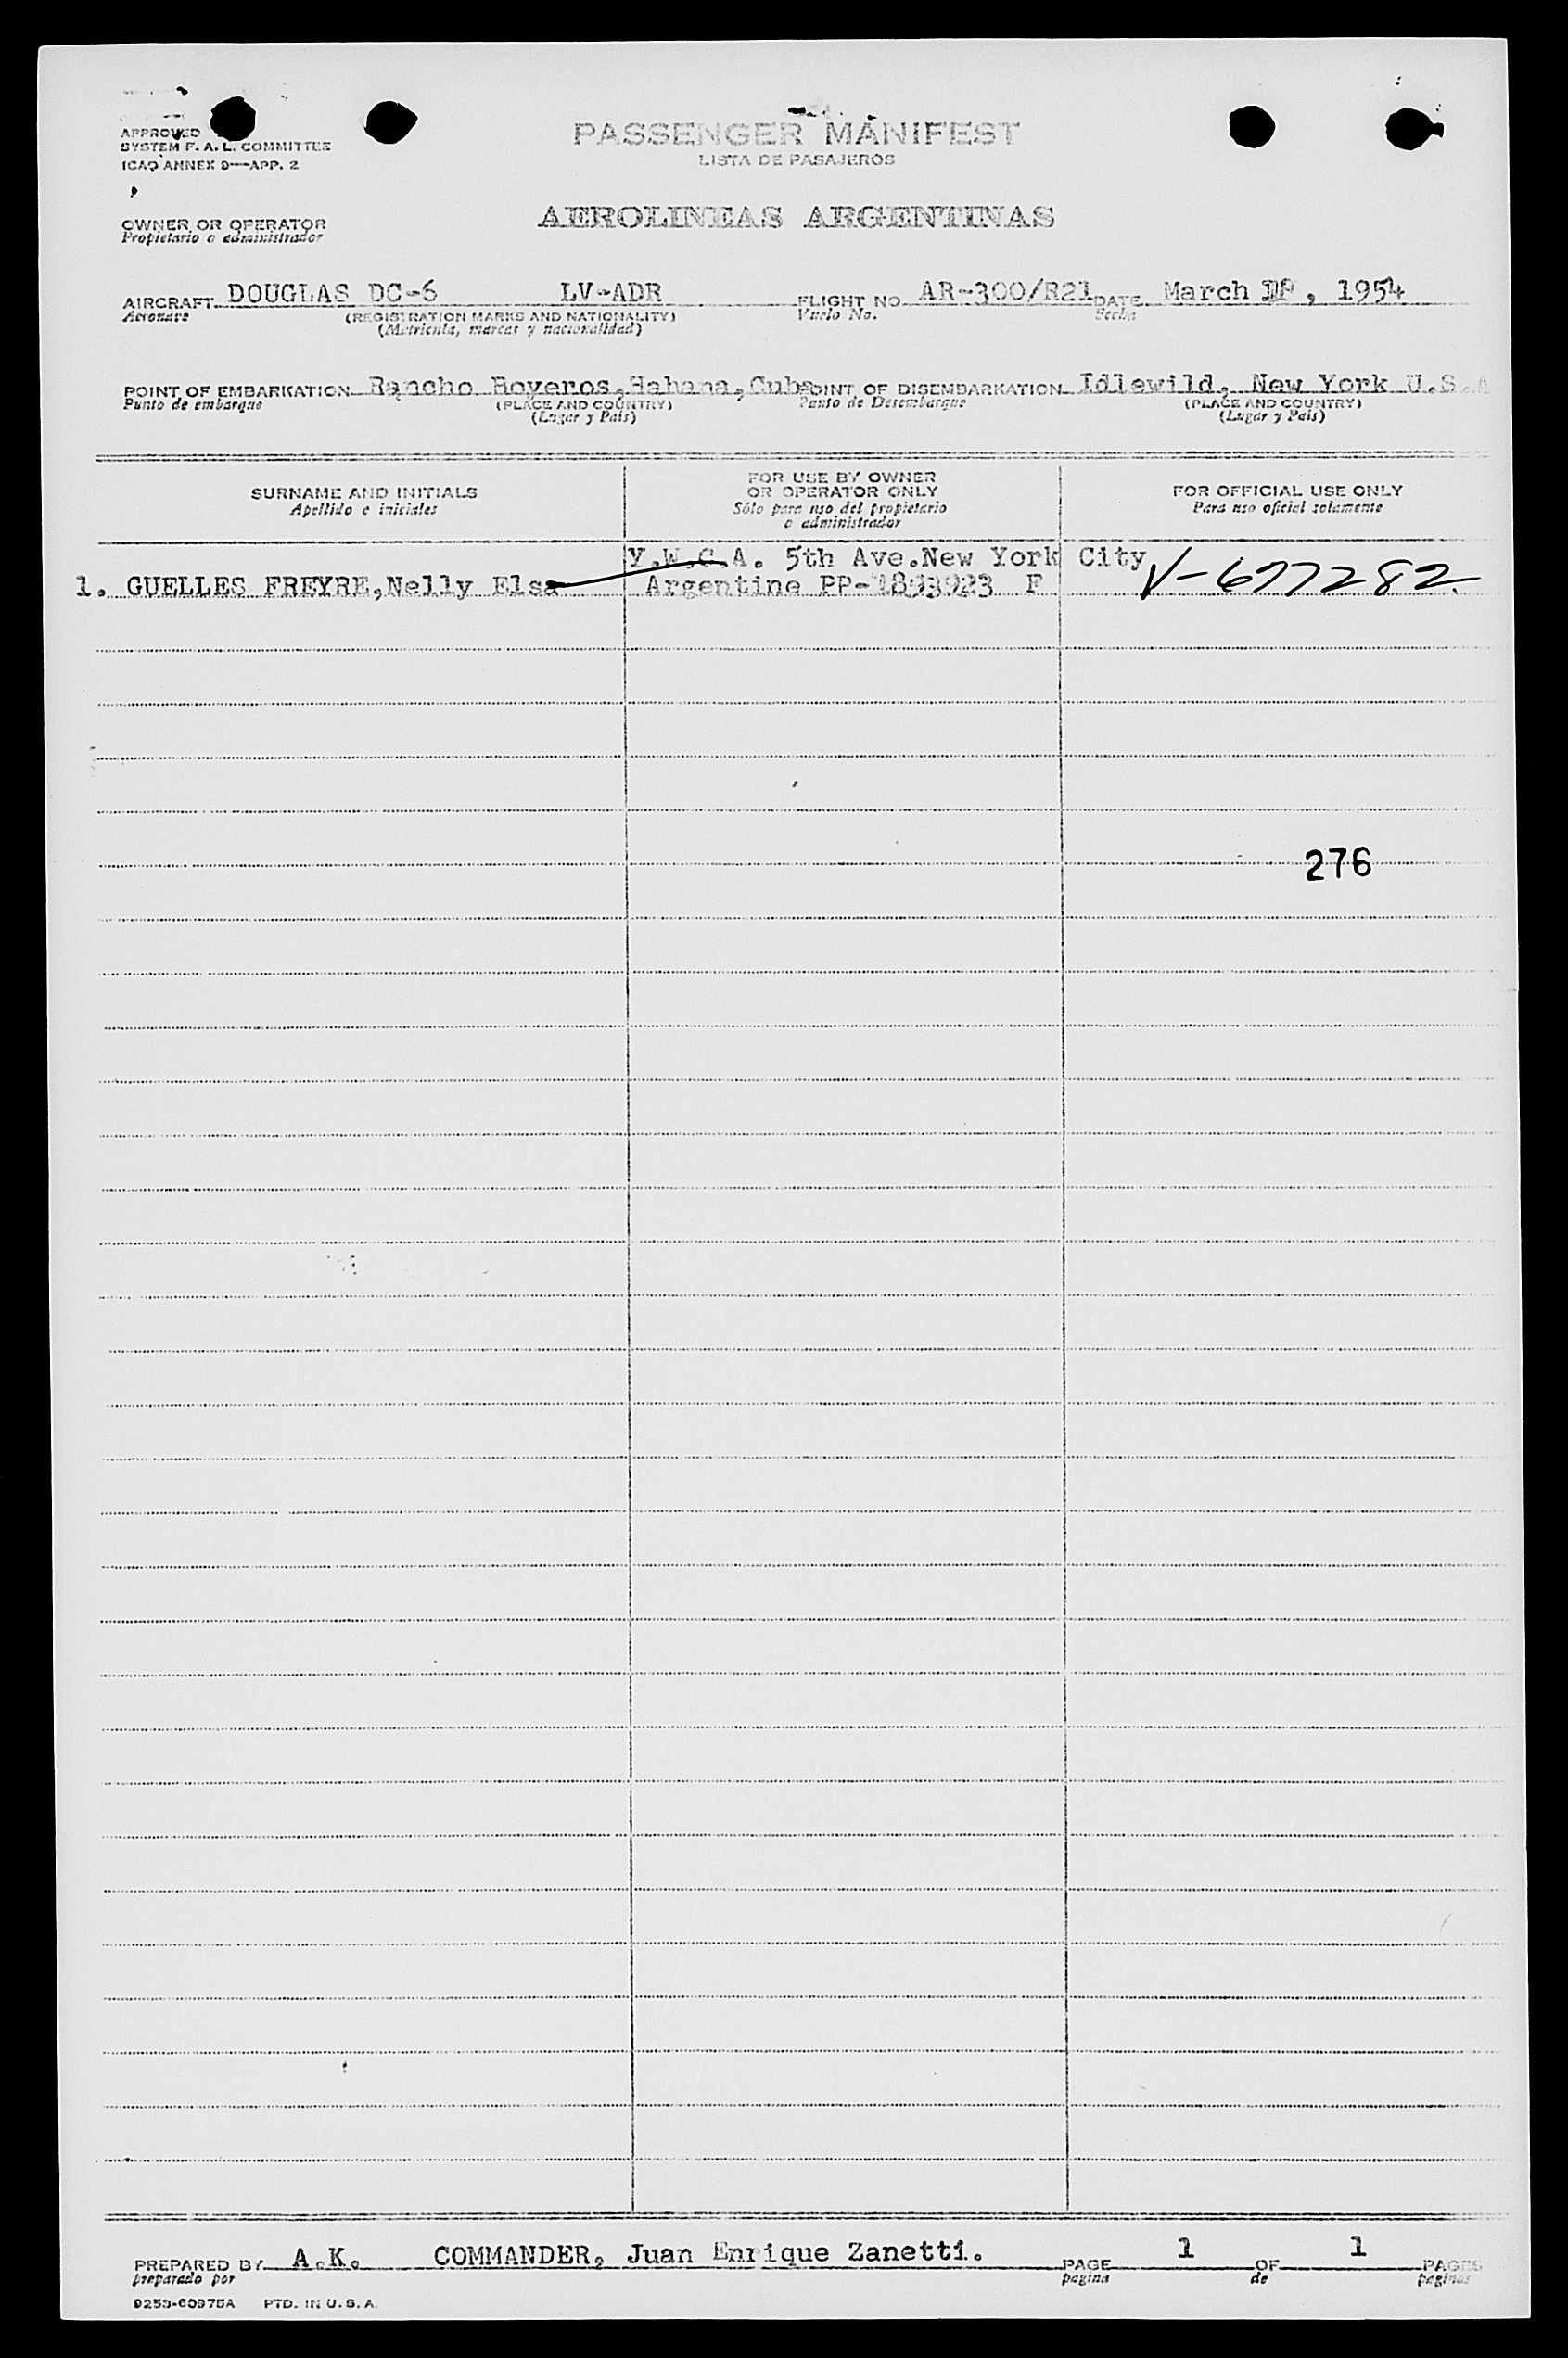 APPROVED
SYSTEM F. A. L. COMMITTEE
ICAO ANNEX 9—APP. 2
PASSENGER MANIFEST
LISTA DE PASAJEROS
OWNER OR OPERATOR
Propietario o administrador
AEROLINEAS ARGENTINAS
AIRCRAFT DOUGLAS DC-6 LV-ADR FLIGHT NO. AR-300/R21 DATE March , 1954
Aeronave (REGISTRATION MARKS AND NATIONALITY) Vuelo No. Fecha
(Matricula, marcas y nacionalidad)
POINT OF EMBARKATION Rancho Boyeros, Habana, Cuba POINT OF DISEMBARKATION Idlewild, New York U.S.A
Punto de embarque (PLACE AND COUNTRY) Punto de Desembarque (PLACE AND COUNTRY)
(Lugar y Pais) (Lugar y Pais)
SURNAME AND INITIALS
Apellido e iniciales
FOR USE BY OWNER
OR OPERATOR ONLY
Sólo para uso del propietario
o administrador
FOR OFFICIAL USE ONLY
Para uso oficial solamente
Y.W.C.A. 5th Ave.New York City
1. GUELLES FREYRE,Nelly Elsa Argentine F V-677282.
276
PREPARED BY A.K. COMMANDER, Juan Enrique Zanetti. PAGE 1 OF 1 PAGES
preparado por pagina de paginas
9253-60975A PTD. IN U.S.A.